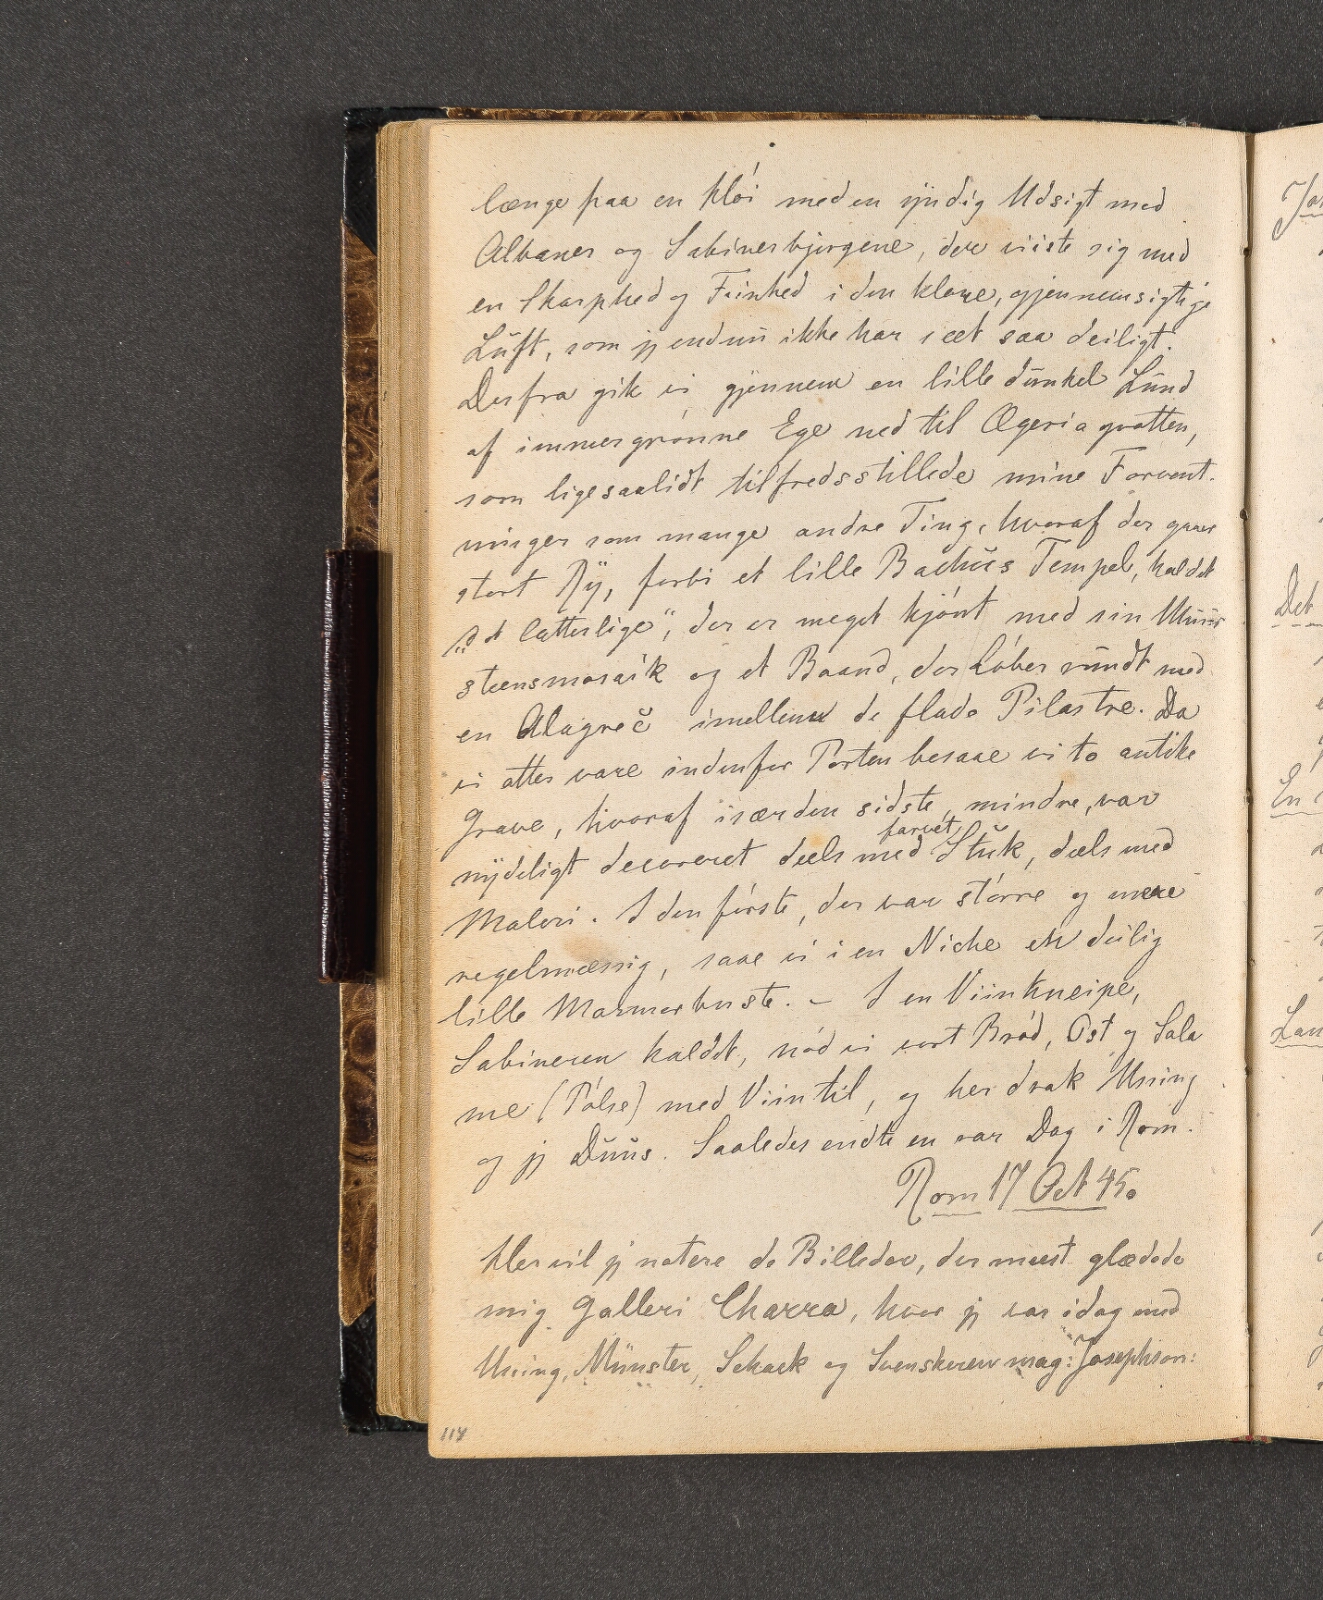 længe paa en Høi med en yndig Udsigt med
Albaner og Sabinerbjergene, der viiste sig med
en Skarphed og Fiinhed i den klare, gjennemsigtige
Luft, som jg endnu ikke har seet saa deiligt.
Derfra gik vi gjennem en lille dunkel Lund
af immergrønne Ege ned til Ægeria grotten,
som ligesaalidt tilfredsstillede mine Forvent-
ninger som mange andre Ting, hvoraf der gaaer
stort Ry, forbi et lille Bachus Tempel, kaldet
„det latterlige", der er meget kjønt med sin Muur
steensmosaik og et Baand, der Løber rundt med
en Alagrec imellem de flade Pilastre. Da
vi atter vare indenfor Porten besaae vi to antike
Grave, hvoraf især den sidste, mindre, var
nydeligt decoreret deels med farvet Stuk, deels med
Maleri. I den første, der var større og mere
regelmæssig, saae vi i en Niche en deilig
lille Marmorbuste. – I en Viinkneipe,
Sabineren kaldet, nød vi vort Brød, Ost og Sala
me (Pølse) med Viin til, og her drak Ussing
og jg Duus. Saaledes endte en rar Dag i Rom.
Rom 17 Oct 45.
Her vil jg notere de Billeder, der meest glædede
mig Galleri Charra, hvor jg var idag med
Ussing, Münster, Schack og Svenskeren mag: Josephson:
114
Det
En
Lan